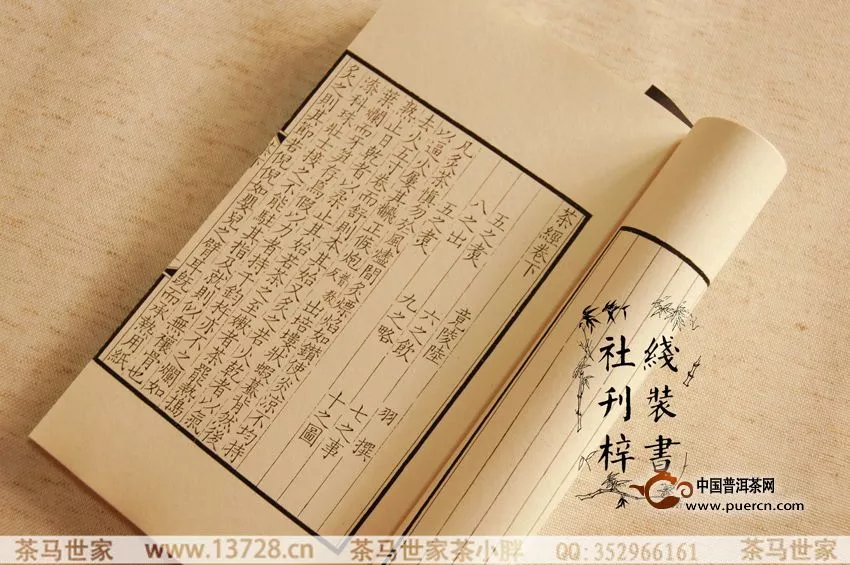 茶經卷下
竟陵陸 羽 撰
五之煮 六之飲 七之事
八之出 九之略 十之圖
五之煮
凡炙茶慎勿於風燼間炙熛焰如鑽使炎涼不均持
以逼火屢其飜正候炮普教反出培塿狀蝦蟇背然後
去火五寸卷而舒則本其始又炙之若火乾者以氣
熟止日乾者以柔止其始若茶之至嫩者茶罷熱搗
葉爛而牙笋存焉假以力者持千鈞杵亦不之爛如
漆科珠壯士接之不能駐其指及就則似無禳骨也
炙之則其節若倪倪如嬰兒之臂耳既而承熱用紙
綫装書
社刊梓
中国普洱茶网
www.puercn.com
茶马世家 www.13728.cn 茶马世家茶小胖 QQ:352966161 茶马世家